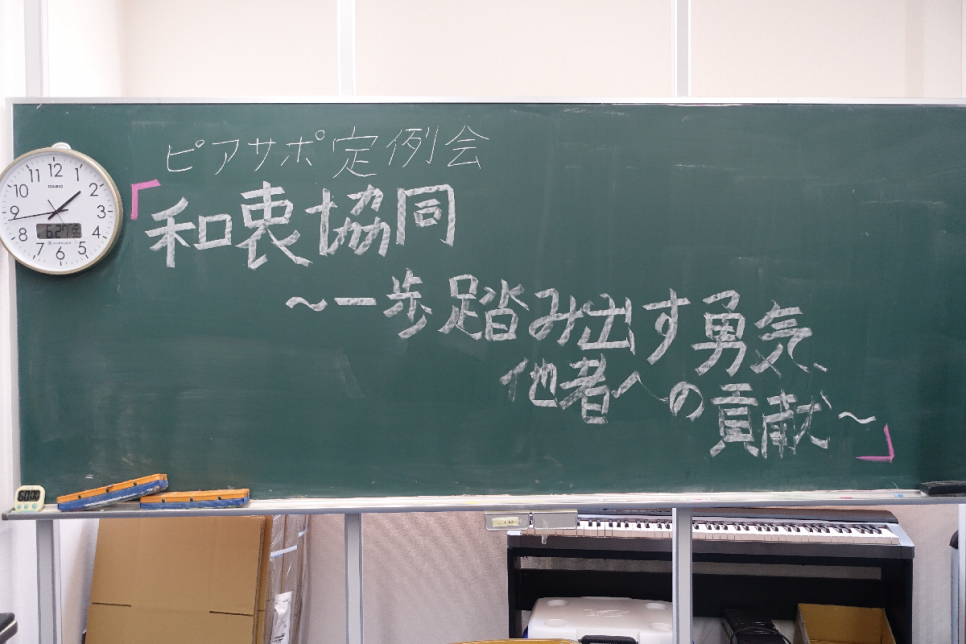 ピアサポ定例会
「和衷協同
～一歩踏み出す勇気、
他者への貢献～」
12
1
2
3
4
5
6
7
8
9
10
11
CASIO
6.27
60:00